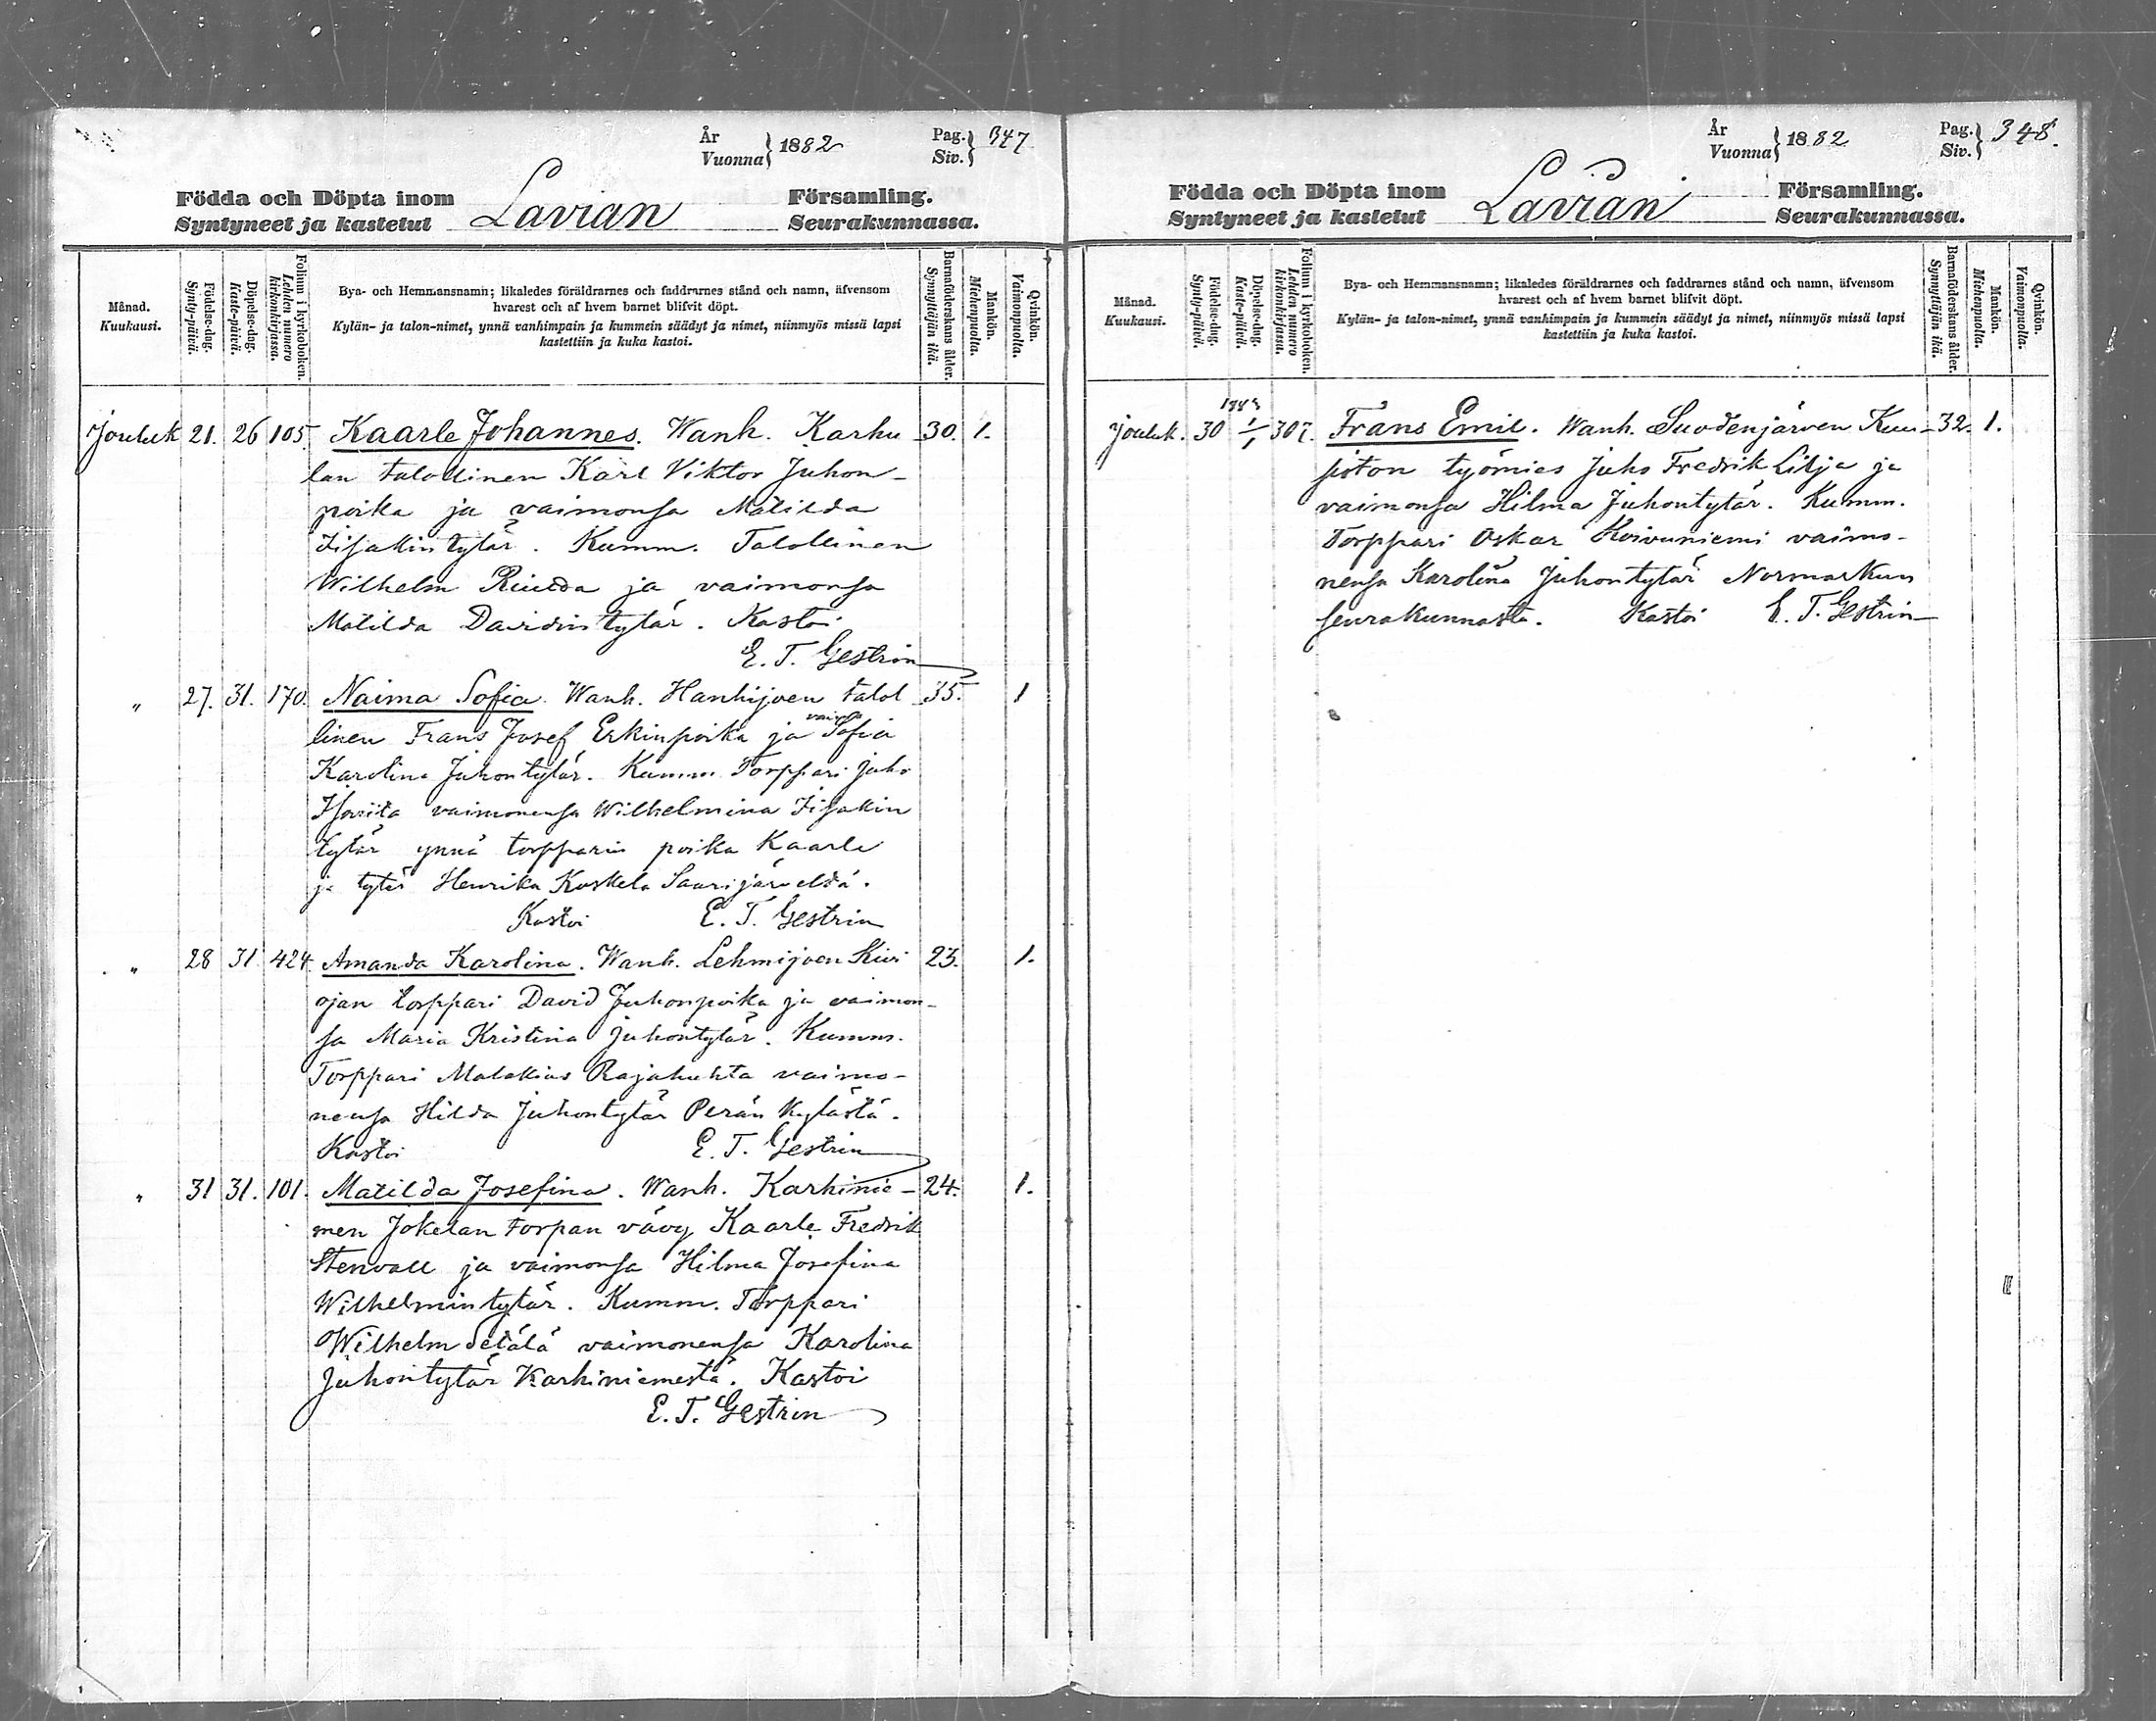 År
Vuonna } 1882
Pag.
Siv. } 347
Födda och Döpta inom
Syntyneet ja kastetut
Lavian
Församling.
Seurakunnassa.
Månad.
Kuukausi.
Födelse-dag.
Synty-päivä.
Döpelse-dag.
Kaste-päivä.
Folium i kyrkoboken.
Lehden numero
kirkonkirjassa.
Bya- och Hemmansnamn; likaledes föräldrarnes och faddrarnes stånd och namn, äfvensom
hvarest och af hvem barnet blifvit döpt.
Kylän- ja talon-nimet, ynnä vanhimpain ja kummein säädyt ja nimet, niinmyös missä lapsi
kastettiin ja kuka kastoi.
Barnaföderskans ålder.
Synnyttäjän ikä.
Mankön.
Miehenpuolta.
Qvinkön.
Vaimonpuolta.
Jouluk 21. 26 105. Kaarle Johannes. Wanh. Karhu- 30. 1.
lan talollinen Karl Viktor Juhon-
poika ja vaimonsa Matilda
Iisakintytär. Kumm. Talollinen
Wilhelm ja vaimonsa
Matilda Davidintytär. Kastoi
E. T. Gestrin
" 27. 31. 170. Naima Sofia. Wanh. Hanhijoen talol- 35. 1
vaims
linen Frans Josef Erkinpoika ja Sofia
Karolina Juhontytär. Kumm. Torppari Juho
vaimonensa Wilhelmina Iisakin
tytär ynnä torpparin poika Kaarle
ja tytär Henrika Koskela Saarijäveldä.
Kastoi E. T. Gestrin
" 28 31. 424. Amanda Karolina. Wanh. Lehmijoen Kivi 23. 1.
ojan torppari David Juhonpoika ja vaimon-
sa Maria Kristina Juhontytär. Kumm.
Torppari Malakias Rajahuhta vaimo-
nensa Hilda Juhontytär Perän kylästä.
Kastoi E. T. Gestrin
" 31 31. 101. Matilda Josefina. Wanh. Karhinie- 24. 1.
men Jokelan torpan vävy Kaarle Fredrik
Stenvall ja vaimonsa Hilma Josefina
Wilhelmintytär. Kumm. Torppari
Wilhelm Setälä vaimonensa Karolina
Juhontytär Karhiniemestä. Kastoi
E. T. Gestrin
År
Vuonna } 1882
Pag.
Siv. } 348.
Födda och Döpta inom
Syntyneet ja kastetut
Lavian
Församling.
Seurakunnassa.
Månad.
Kuukausi.
Födelse-dag.
Synty-päivä.
Döpelse-dag.
Kaste-päivä.
Folium i kyrkoboken.
Lehden numero
kirkonkirjassa.
Bya- och Hemmansnamn; likaledes föräldrarnes och faddrarnes stånd och namn, äfvensom
hvarest och af hvem barnet blifvit döpt.
Kylän- ja talon-nimet, ynnä vanhimpain ja kummein säädyt ja nimet, niinmyös missä lapsi
kastettiin ja kuka kastoi.
Barnaföderskans ålder.
Synnyttäjän ikä.
Mankön.
Miehenpuolta.
Qvinkön.
Vaimonpuolta.
1883
Jouluk. 30 1/1 307. Frans Emil. Wanh. Suodenjärven Kuu- 32. 1.
siston työmies Juho Fredrik Lilja ja
vaimonsa Hilma Juhontytär. Kumm.
Torppari Oskar Koivuniemi vaimo-
nensa Karolina Juhontytär Normarkun
seurakunnasta. Kastoi E. T. Gestrin